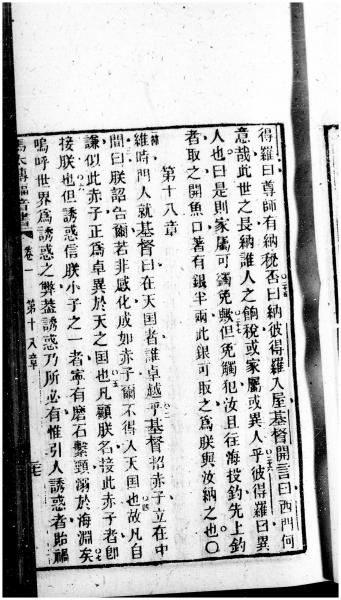 得羅曰尊師有納稅否曰納彼得羅入屋基督開言曰西門何
意哉此世之長納誰人之餉稅或家屬或異人乎彼得羅曰異
人也曰是則家屬可獨免歟但免觸犯汝且往海投釣先上釣
者取之開魚口著有銀半兩此銀可取之為朕與汝納之也〇
第十八章
維時門人就基督曰在天國者誰卓越乎基督招赤子立在中
間曰朕詔告爾若非感化成如赤子爾不得入天國也故凡自
謙似此赤子正為卓異於天之國也凡顧朕名接此赤子者卽
接朕也但誘惑信朕小子之一者寧有磨石繫頸溺於海淵矣
嗚呼世界為誘惑之弊蓋誘惑乃所必有惟引人誘惑者貽禍
馬太傳福音書 卷一 第十八章